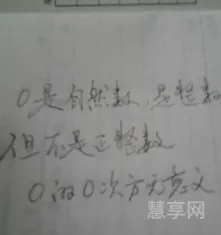 0是自然数,是整数
但不是正整数
0的0次方无意义
慧享网